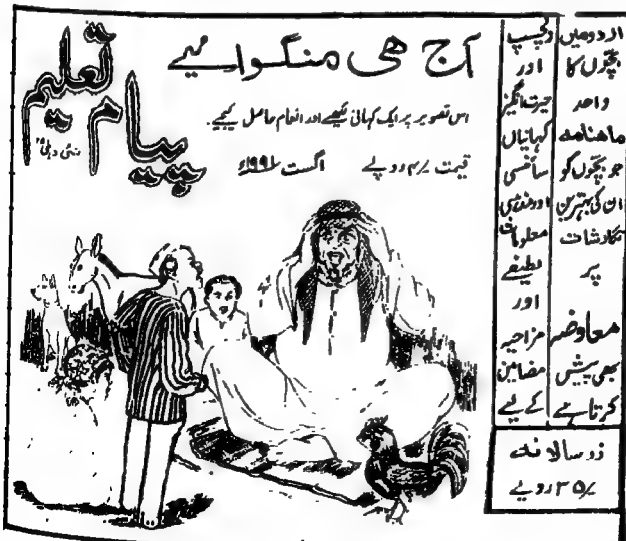 آج ھی منگوائیے
پیام تعلیم
نئی دہلی ۲۵
اس تصویر پر ایک کہانی لکھیے اور انعام حاصل کیجیے.
قیمت ۴/ روپے اگست ۱۹۹۱ء
اردو میں
بچّوں کا
واحد
ماھنامہ
جو بچّوں کو
ان کی بہترین
نگارشات
پر
معاوضہ
بھی پیش
کرتا ہے
دلچسپ
اور
حیرت انگیز
کہانیاں
سائنسی
اور مذہبی
معلومات
لطیفے
اور
مزاحیہ
مضامین
کے لیے
زر سالانہ
۳۵/ روپے